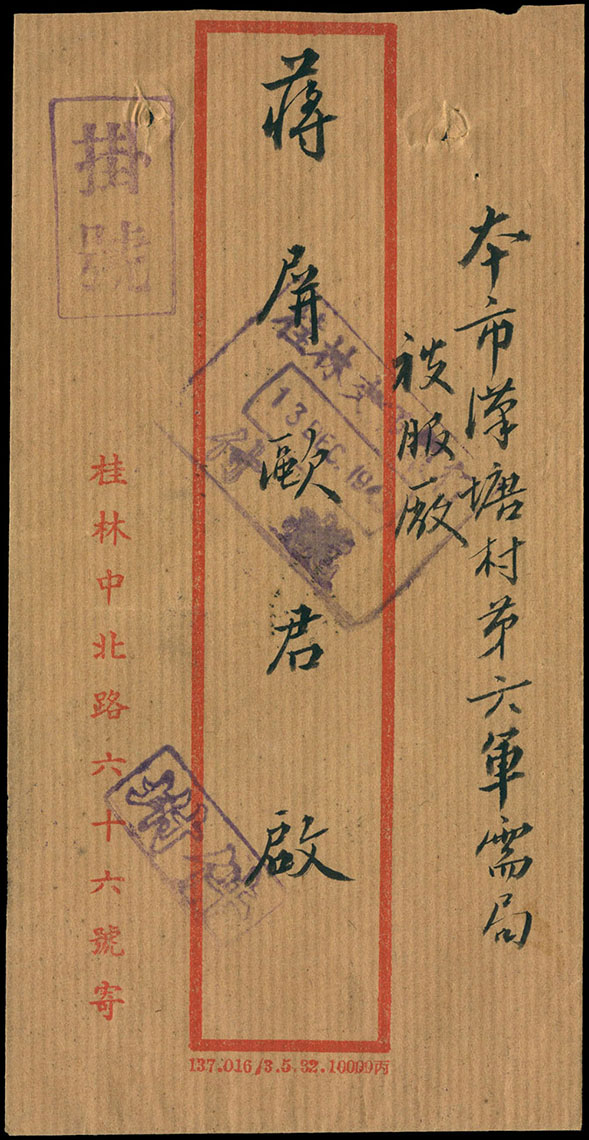 本市漢塘村第六軍需局
被服廠
蔣屏歐君啟
掛號
桂林中北路六十六號寄
137.016/3.5.32.10000丙
桂林
13 DEC. 19